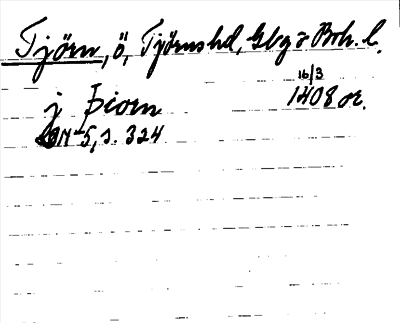 Tjörn, ö, Tjörns hd, Gbg o Boh. l.
16/3
j Þiorn 1408 or.
DN 5, s. 324